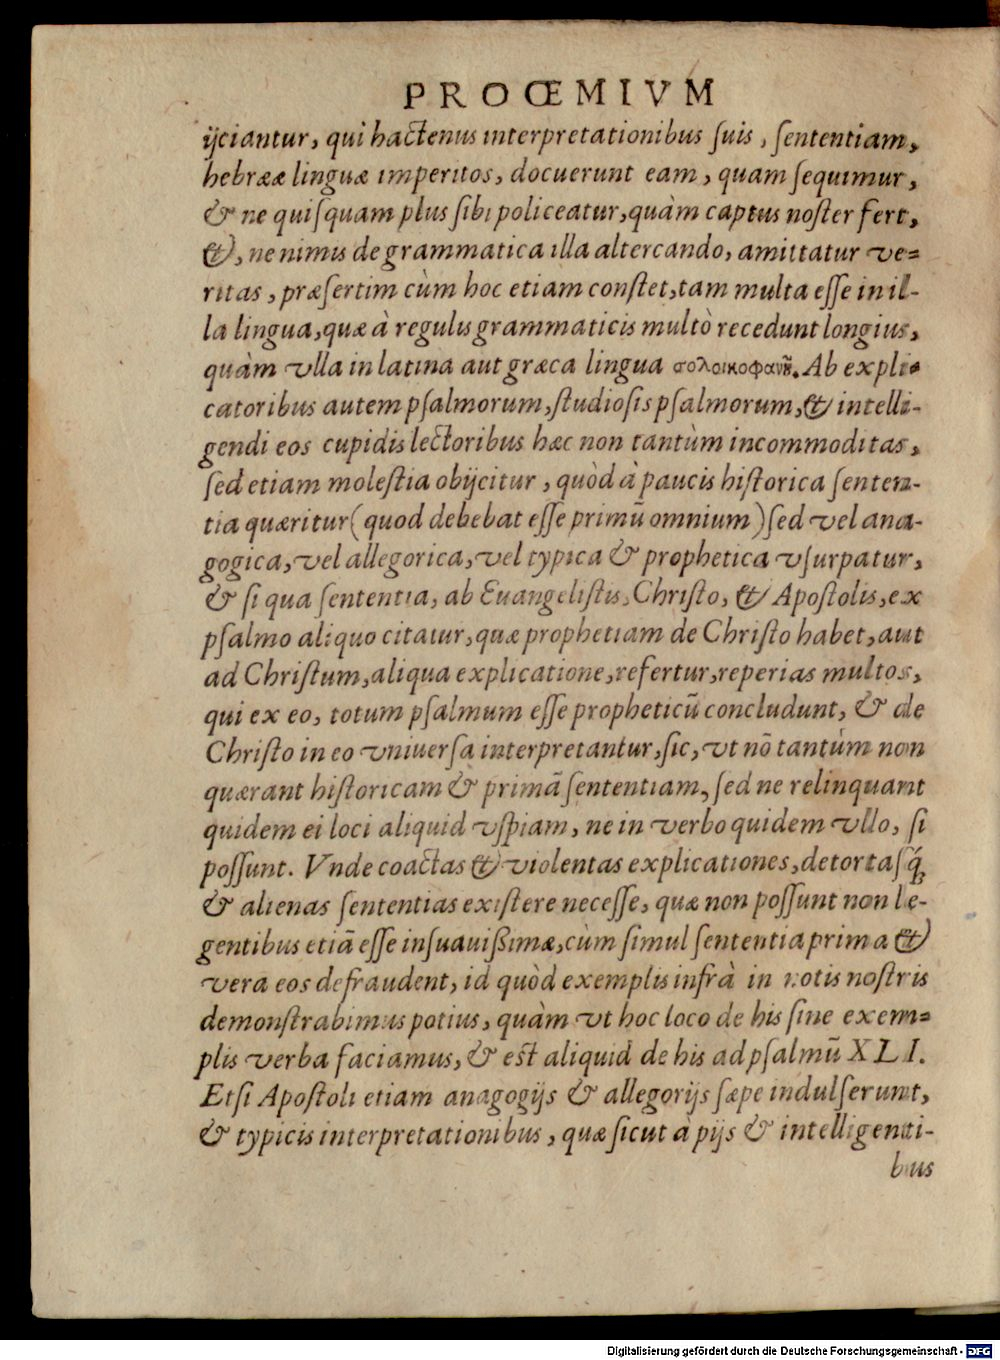 PROŒMIVM
ijciantur, qui hactenus interpretationibus ſuis, ſententiam,
hebrææ linguæ imperitos, docuerunt eam, quam ſequimur,
& ne quiſquam plus ſibi policeatur, quàm captus noſter fert,
&, ne nimis de grammatica illa altercando, amittatur ve=
ritas, præſertim cùm hoc etiam conſtet, tam multa eſſe in il-
la lingua, quæ à regulis grammaticis multò recedunt longius,
quàm vlla in latina aut græca lingua σολοικοφανῆ. Ab expli=
catoribus autem pſalmorum, ſtudioſis pſalmorum, & intelli-
gendi eos cupidis lectoribus hæc non tantùm incommoditas,
ſed etiam moleſtia obijcitur, quòd à paucis hiſtorica ſenten-
tia quæritur (quod debebat eſſe primū omnium) ſed vel ana-
gogica, vel allegorica, vel typica & prophetica vſurpatur,
& ſi qua ſententia, ab Euangeliſtis, Chriſto, & Apoſtolis, ex
pſalmo aliquo citatur, quæ prophetiam de Chriſto habet, aut
ad Chriſtum, aliqua explicatione, refertur, reperias multos,
qui ex eo, totum pſalmum eſſe propheticū concludunt, & de
Chriſto in eo vniuerſa interpretantur, ſic, vt nō tantùm non
quærant hiſtoricam & primā ſententiam, ſed ne relinquant
quidem ei loci aliquid vſpiam, ne in verbo quidem vllo, ſi
poſſunt. Vnde coactas & violentas explicationes, detortaſq́;
& alienas ſententias exiſtere neceſſe, quæ non poſſunt non le-
gentibus etiā eſſe inſuauißimæ, cùm ſimul ſententia prima &
vera eos defraudent, id quòd exemplis infrà in notis noſtris
demonſtrabimus potius, quàm vt hoc loco de his ſine exem=
plis verba faciamus, & eſt aliquid de his ad pſalmū XLI.
Etſi Apoſtoli etiam anagogijs & allegorijs ſæpe indulſerunt,
& typicis interpretationibus, quæ ſicut à pijs & intelligenti-
bus
Digitalisierung gefördert durch die Deutsche Forschungsgemeinschaft - DFG